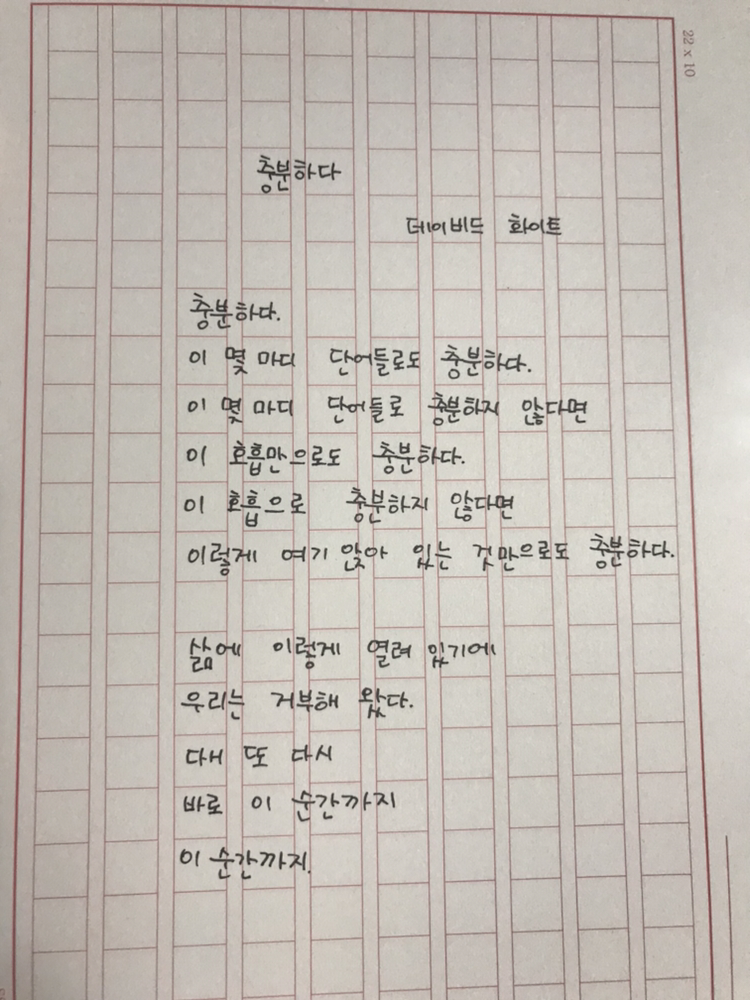 22 x 10
충분하다
데이비드 화이트
충분하다.
이 몇 마디 단어들로도 충분하다.
이 몇 마디 단어들로 충분하지 않다면
이 호흡만으로도 충분하다.
이 호흡으로 충분하지 않다면
이렇게 여기 앉아 있는 것만으로도 충분하다.
삶에 이렇게 열려 있기에
우리는 거부해 왔다.
다시 또 다시
바로 이 순간까지
이 순간까지.